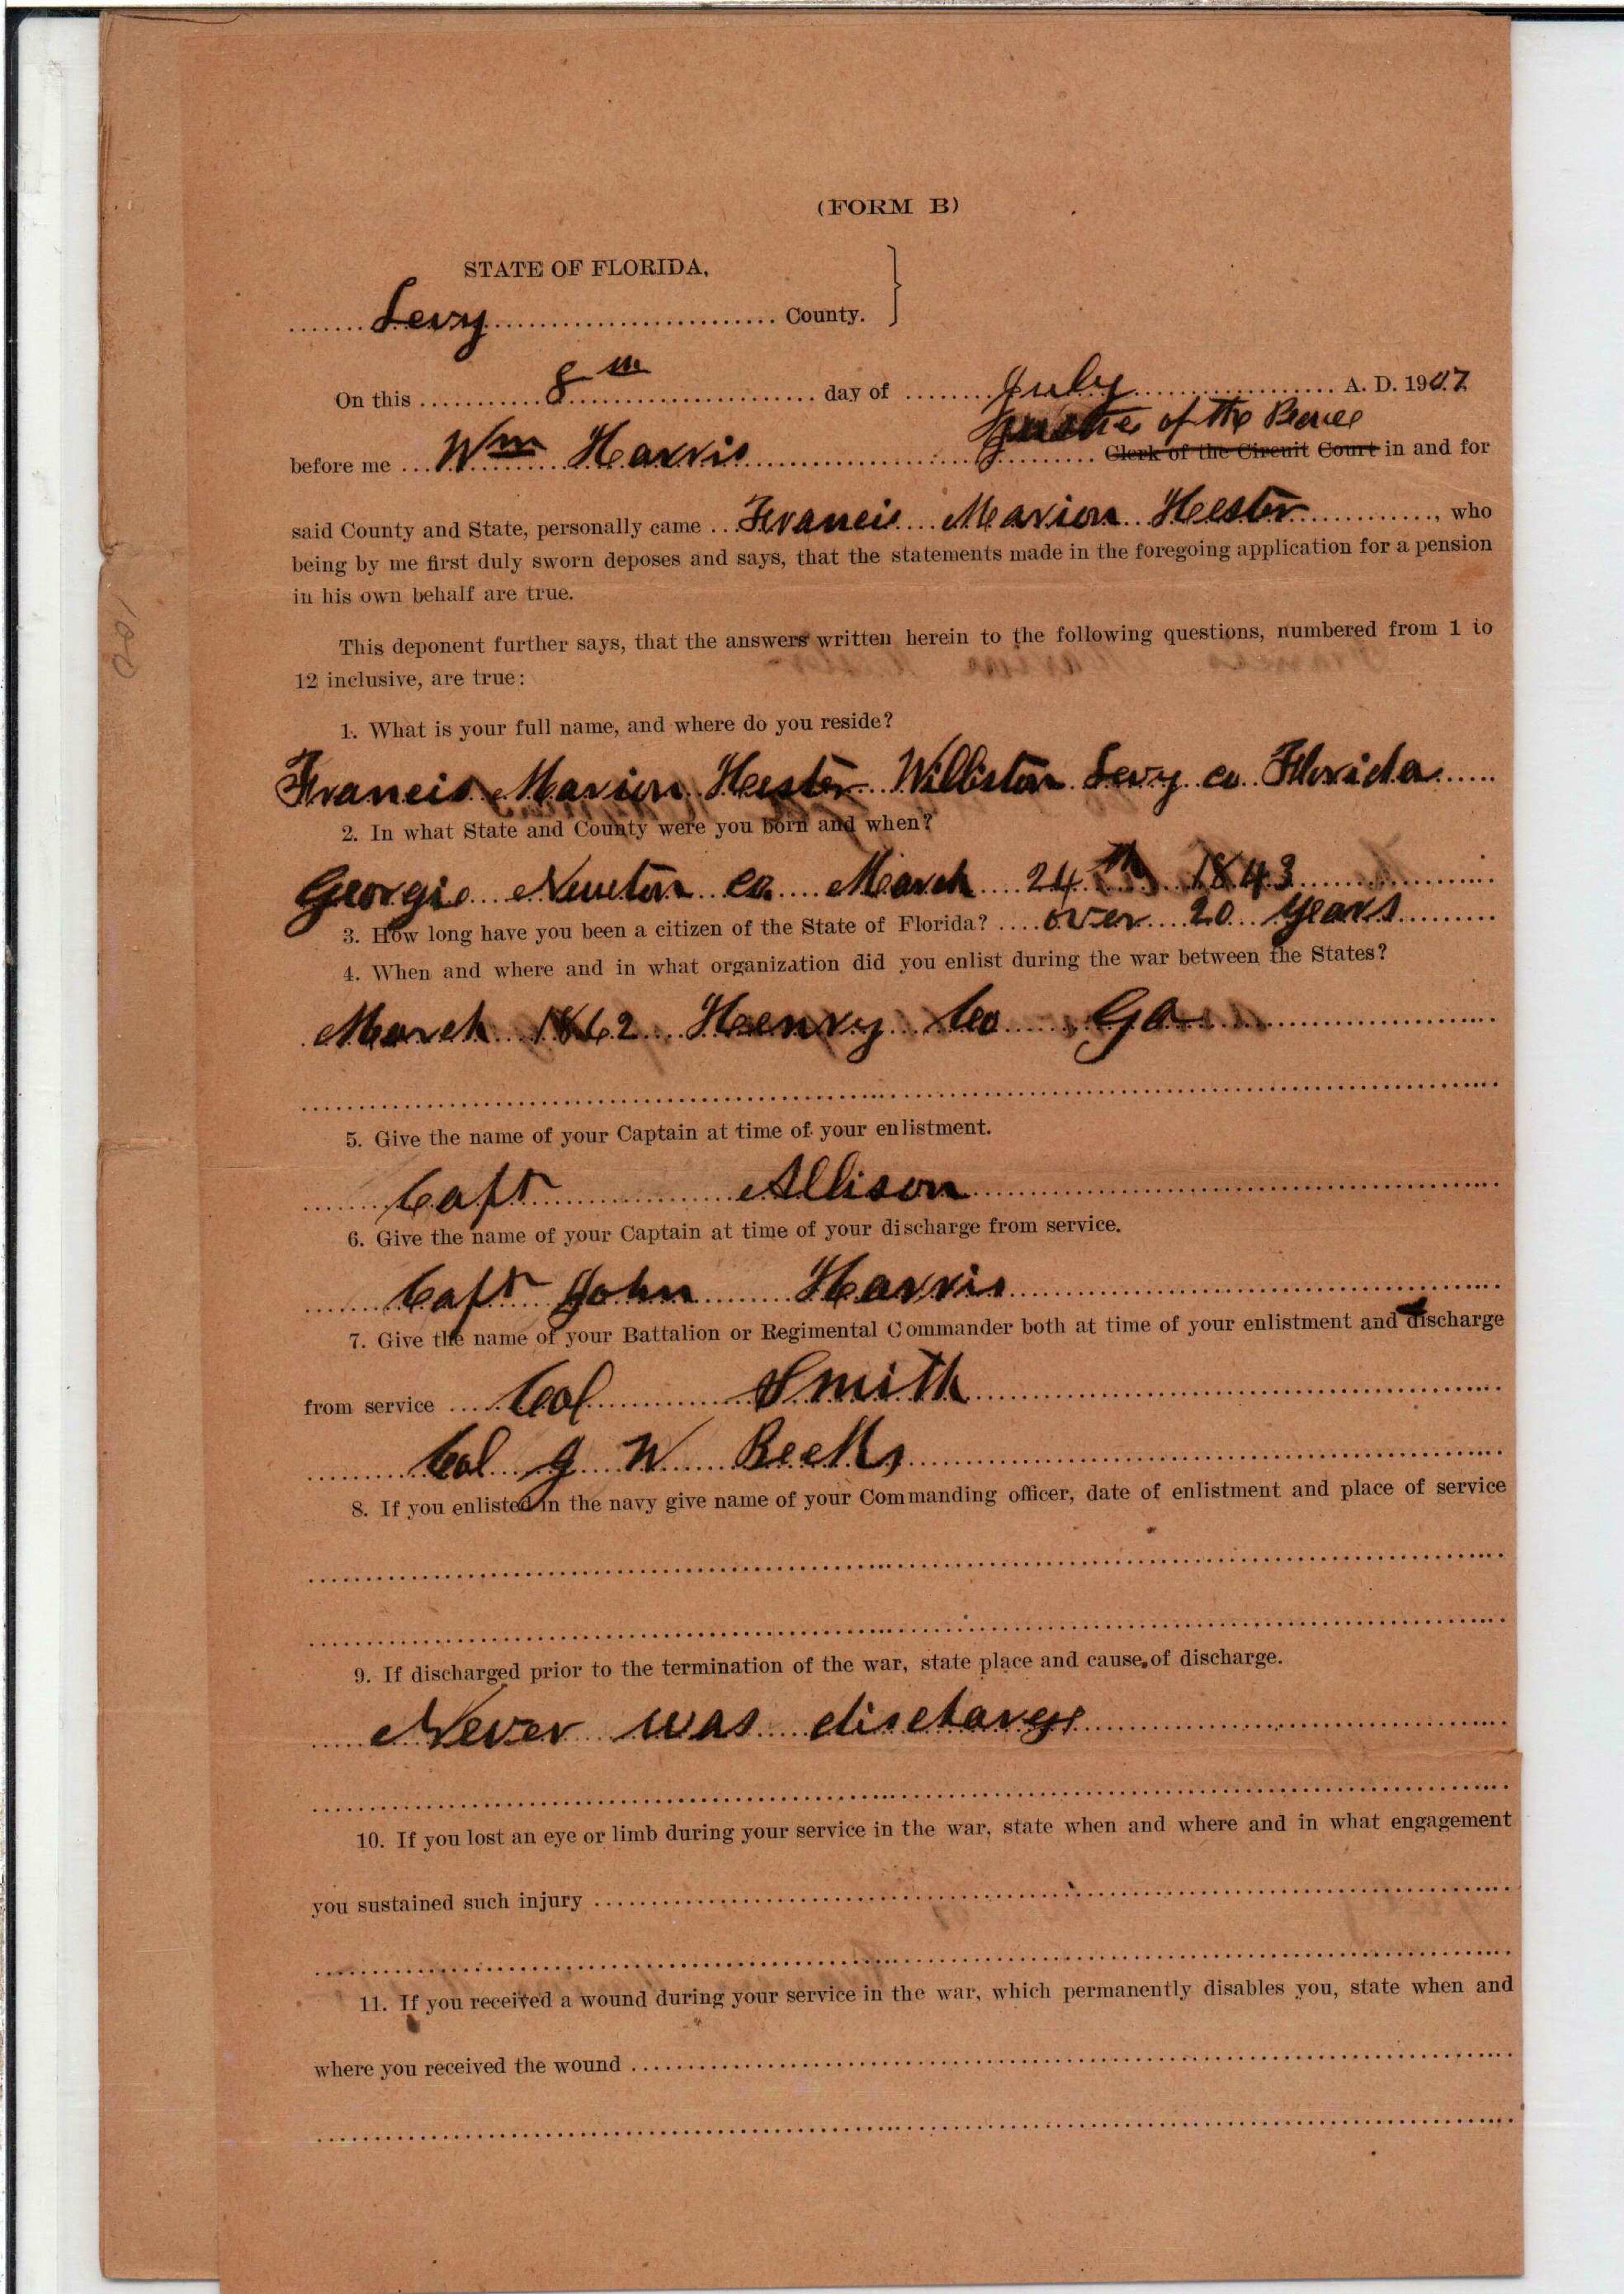 (FORM B)
STATE OF FLORIDA,
Levy County.
On this 8th day of July A. D. 1907
Justice of the Peace
before me Wm Harris Clerk of the Circuit Court in and for
said County and State, personally came Francis Marion Hester, who
being by me first duly sworn deposes and says, that the statements made in the foregoing application for a pension
in his own behalf are true.
This deponent further says, that the answers written herein to the following questions, numbered from 1 to
12 inclusive, are true:
1. What is your full name, and where do you reside?
Francis Marion Hester Williston Levy co Florida
2. In what State and County were you born and when?
Georgia Newton co March 24th 1843
3. How long have you been a citizen of the State of Florida? over 20 years
4. When and where and in what organization did you enlist during the war between the States?
March 1862 Henry Co Ga
5. Give the name of your Captain at time of your enlistment.
Capt Allison
6. Give the name of your Captain at time of your discharge from service.
Capt John Harris
7. Give the name of your Battalion or Regimental Commander both at time of your enlistment and discharge
from service Col Smith
Col J W Beck
8. If you enlisted in the navy give name of your Commanding officer, date of enlistment and place of service
9. If discharged prior to the termination of the war, state place and cause of discharge.
Never was discharge
10. If you lost an eye or limb during your service in the war, state when and where and in what engagement
you sustained such injury
11. If you received a wound during your service in the war, which permanently disables you, state when and
where you received the wound